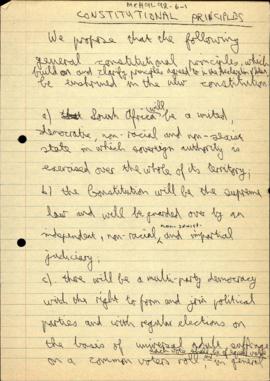 MCH91-92-6-1
CONSTITUTIONAL PRINCIPLES
We propose that the following
general constitutional principles, which
build on and clarify principles agreed to in the declaration of intent
be enshrined in the new constitution:
a) South Africa will be a united,
democratic, non-racial and non-sexist
state in which sovereign authority is
exercised over the whole of its territory;
b) the Constitution will be the supreme
law and will be guarded over by an
independent, non-racial, non-sexist and impartial
judiciary;
c) there will be a multi-party democracy
with the right to form and join political
parties and with regular elections on
the basis of universal adult suffrage
on a common voters roll; in general